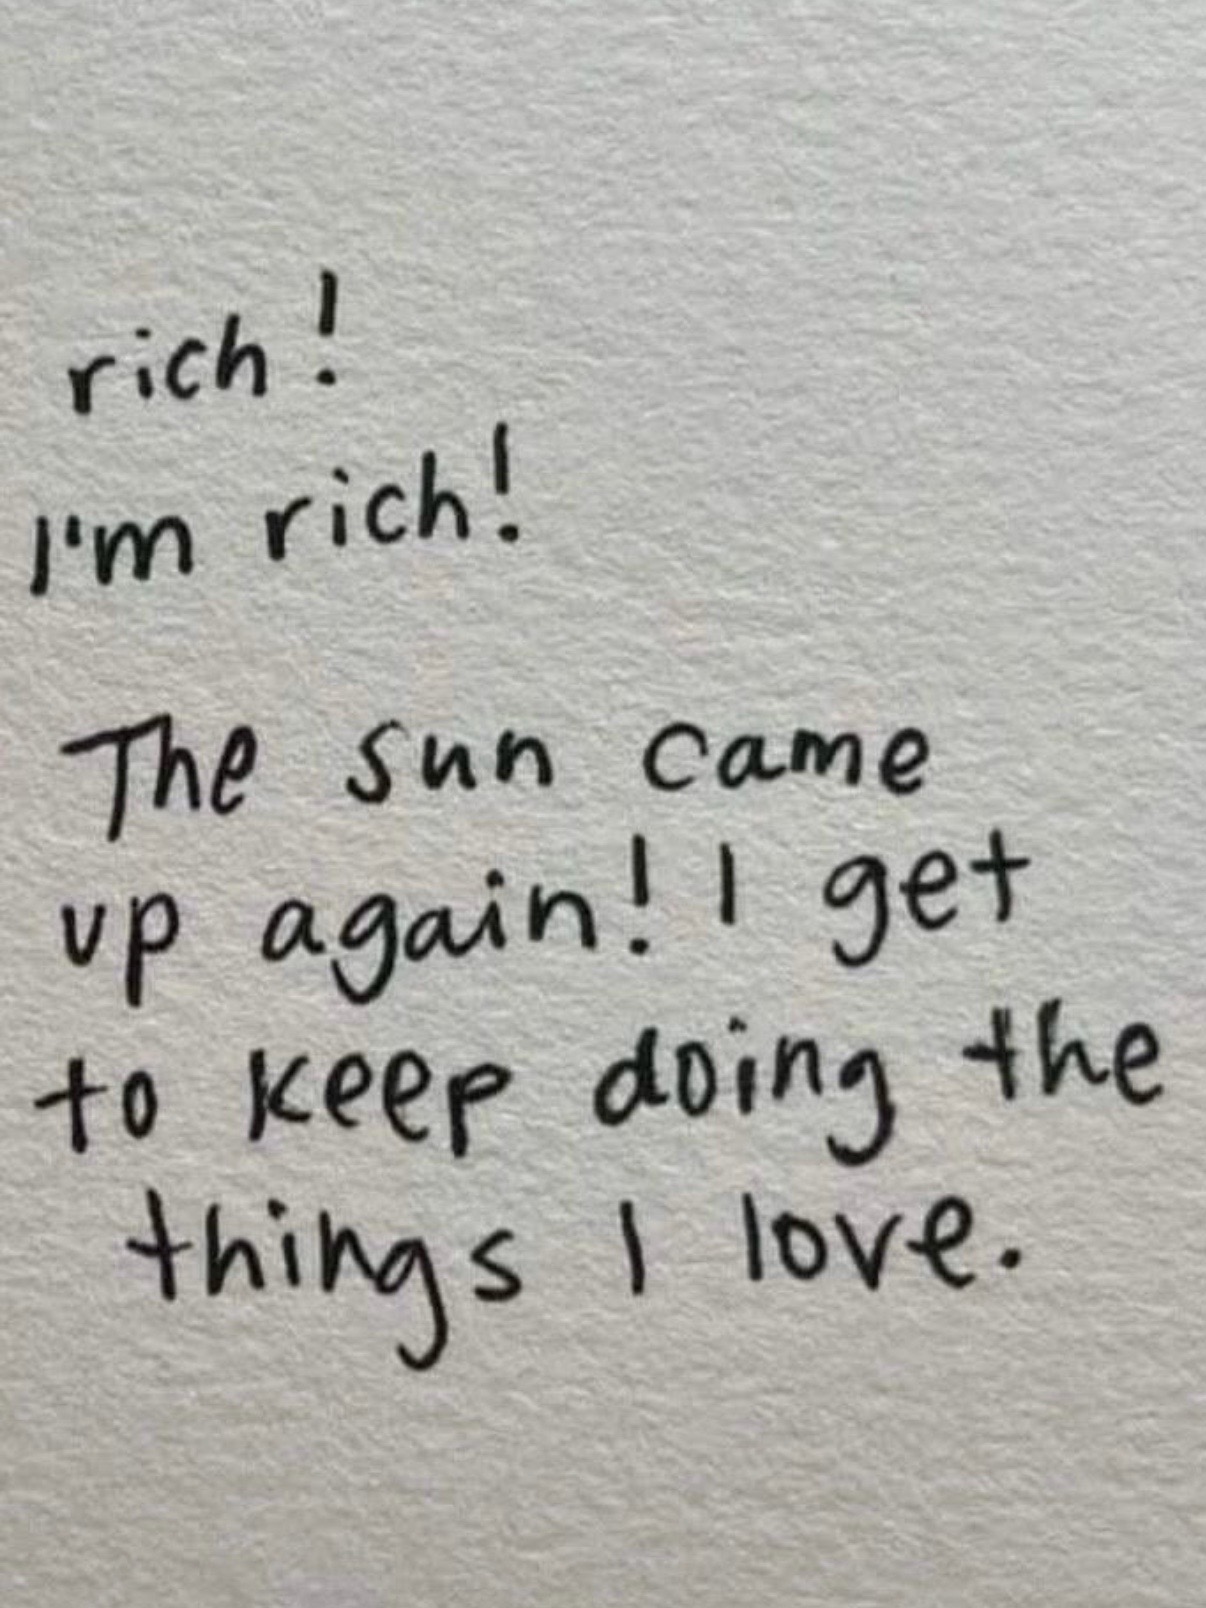 rich!
I'm rich!
The sun came
up again! I get
to keep doing the
things I love.